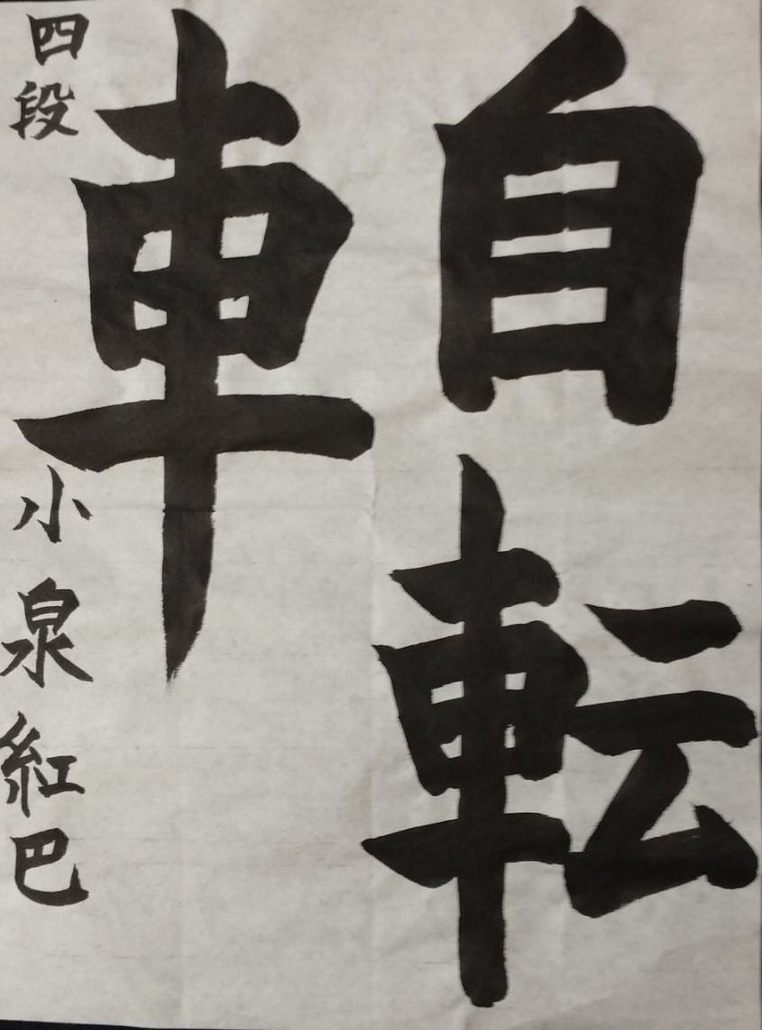 自転
車
四段 小泉紅巴